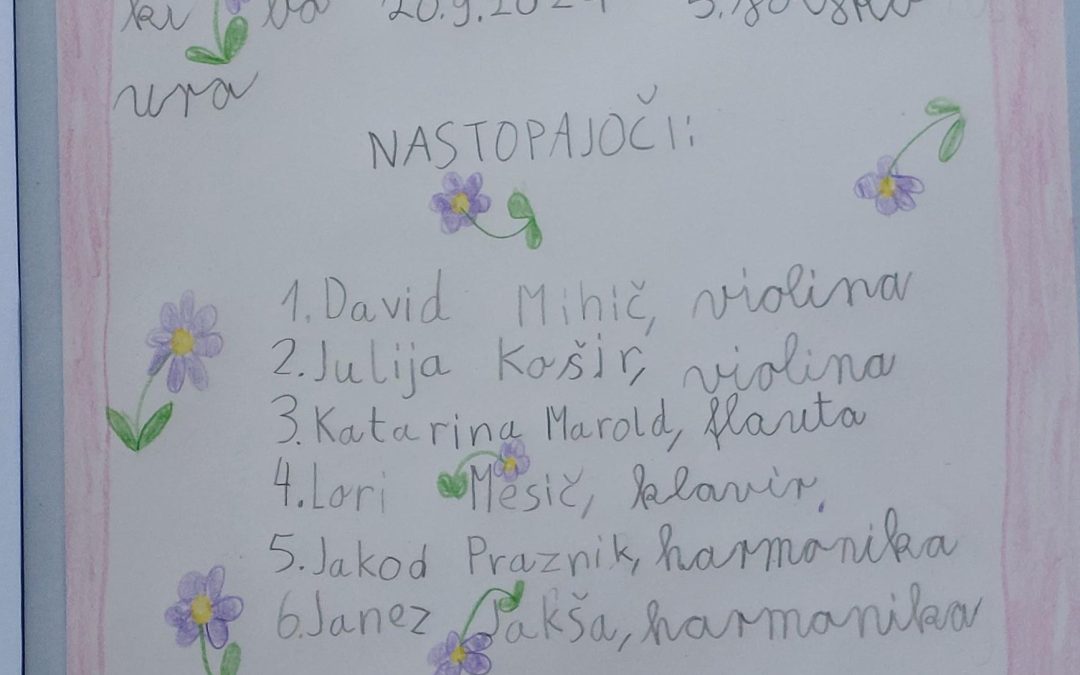 ura
NASTOPAJOČI:
1. David Mihič, violina
2. Julija Košir, violina
3. Katarina Marold, flauta
4. Lori Mesič, klavir,
5. Jakod Praznik, harmonika
6. Janez Jakša, harmonika